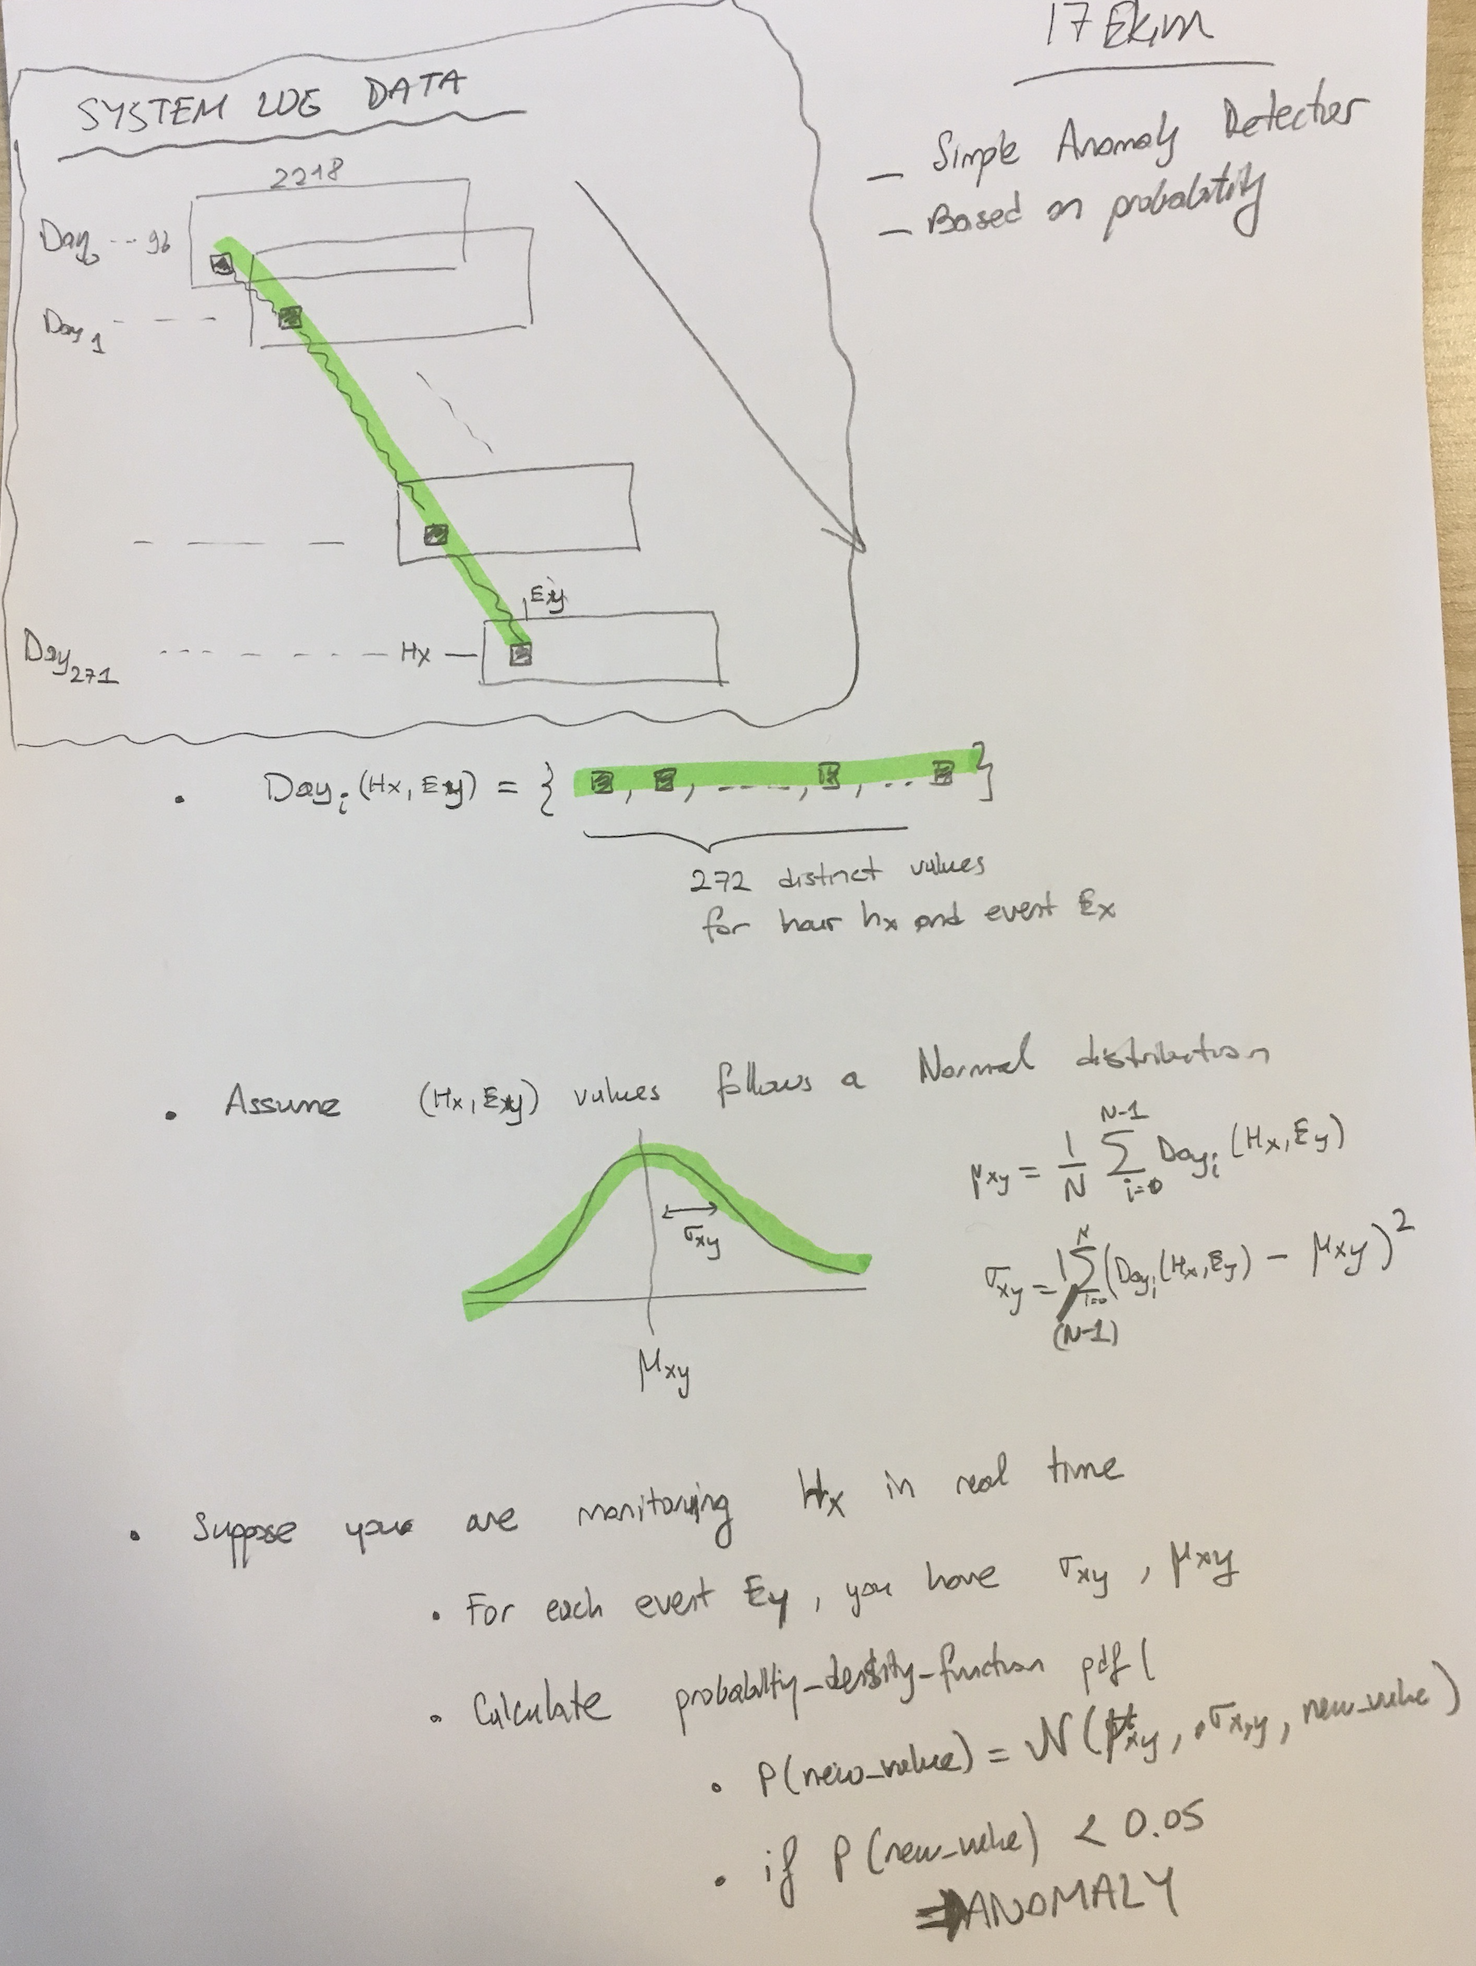 17 Ekim
- Simple Anomaly Detector
- Based on probability
SYSTEM LOG DATA
2218
Day0 --- 96
Day1 - - - -
Ey
Day271 --- - - - - - - Hx —
• Dayi (Hx, Ey) = { ■, ■, -----, ■, .. ■ }
272 distinct values
for hour hx and event Ex
• Assume (Hx, Ey) values follows a Normal distribution
μxy = 1/N Σ i=0 N-1 Dayi (Hx, Ey)
σxy
σxy = 1/(N-1) Σ i=0 N (Dayi (Hx, Ey) - μxy)²
μxy
• Suppose you are monitoring Hx in real time
• For each event Ey, you have σxy, μxy
• Calculate probability-density-function pdf (
• P(new_value) = N(μxy, σx,y, new_value)
• if P(new_value) < 0.05
⇒ ANOMALY